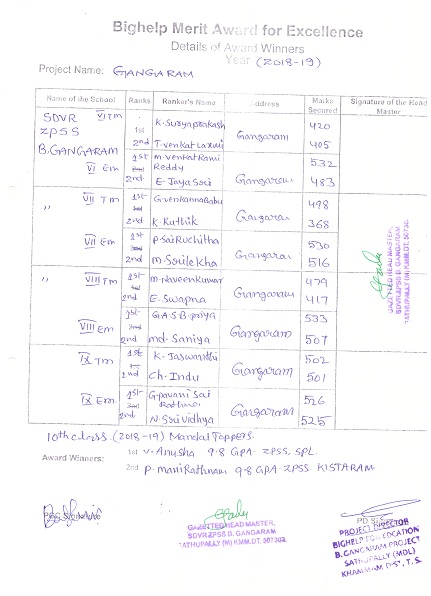 Bighelp Merit Award for Excellence
Details of Award Winners
Year (2018-19)
Project Name: GANGARAM
Name of the School Ranks Ranker's Name Address Marks Secured Signature of the Head Master
SDVR VI Tm 1st K. Suryaprakash Gangaram 420
ZPSS 2nd T. venkat Laxmi 405
B. GANGARAM
VI Em 1st M. venkat Rami Reddy Gangaram 532
2nd E. Jaya Sai 483
,, VII Tm 1st G. venkannababu Gangaram 498
2nd K. Ruthik 368
VII Em 1st P. Sai Ruchitha Gangaram 530
2nd M. Srilekha 516
,, VIII Tm 1st M. Naveen Kumar Gangaram 479
2nd E. Swapna 417
VIII Em 1st G.A.S.B. priya Gangaram 533
2nd md. Saniya 507
IX Tm 1st K. Jaswanthi Gangaram 502
2nd Ch. Indu 501
IX Em 1st G. pavani Sai Gangaram 526
2nd N. Sri vidhya 525
GAZETTED HEAD MASTER,
SDVR ZPSS B. GANGARAM
SATHUPALLY (M) KMM.DT. 507303.
10th class. (2018-19) Mandal Toppers.
Award Winners: 1st V. Anusha 9.8 GPA. ZPSS, SPL.
2nd P. mani Rathnam 9.8 GPA. ZPSS. KISTARAM
GAZETTED HEAD MASTER,
SDVR ZPSS B. GANGARAM
SATHUPALLY (M) KMM.DT. 507303.
PROJECT DIRECTOR
BIGHELP FOR EDCATION
B. GANGARAM PROJECT
SATHUPALLY (MDL)
KHAMMAM DIST, T.S.